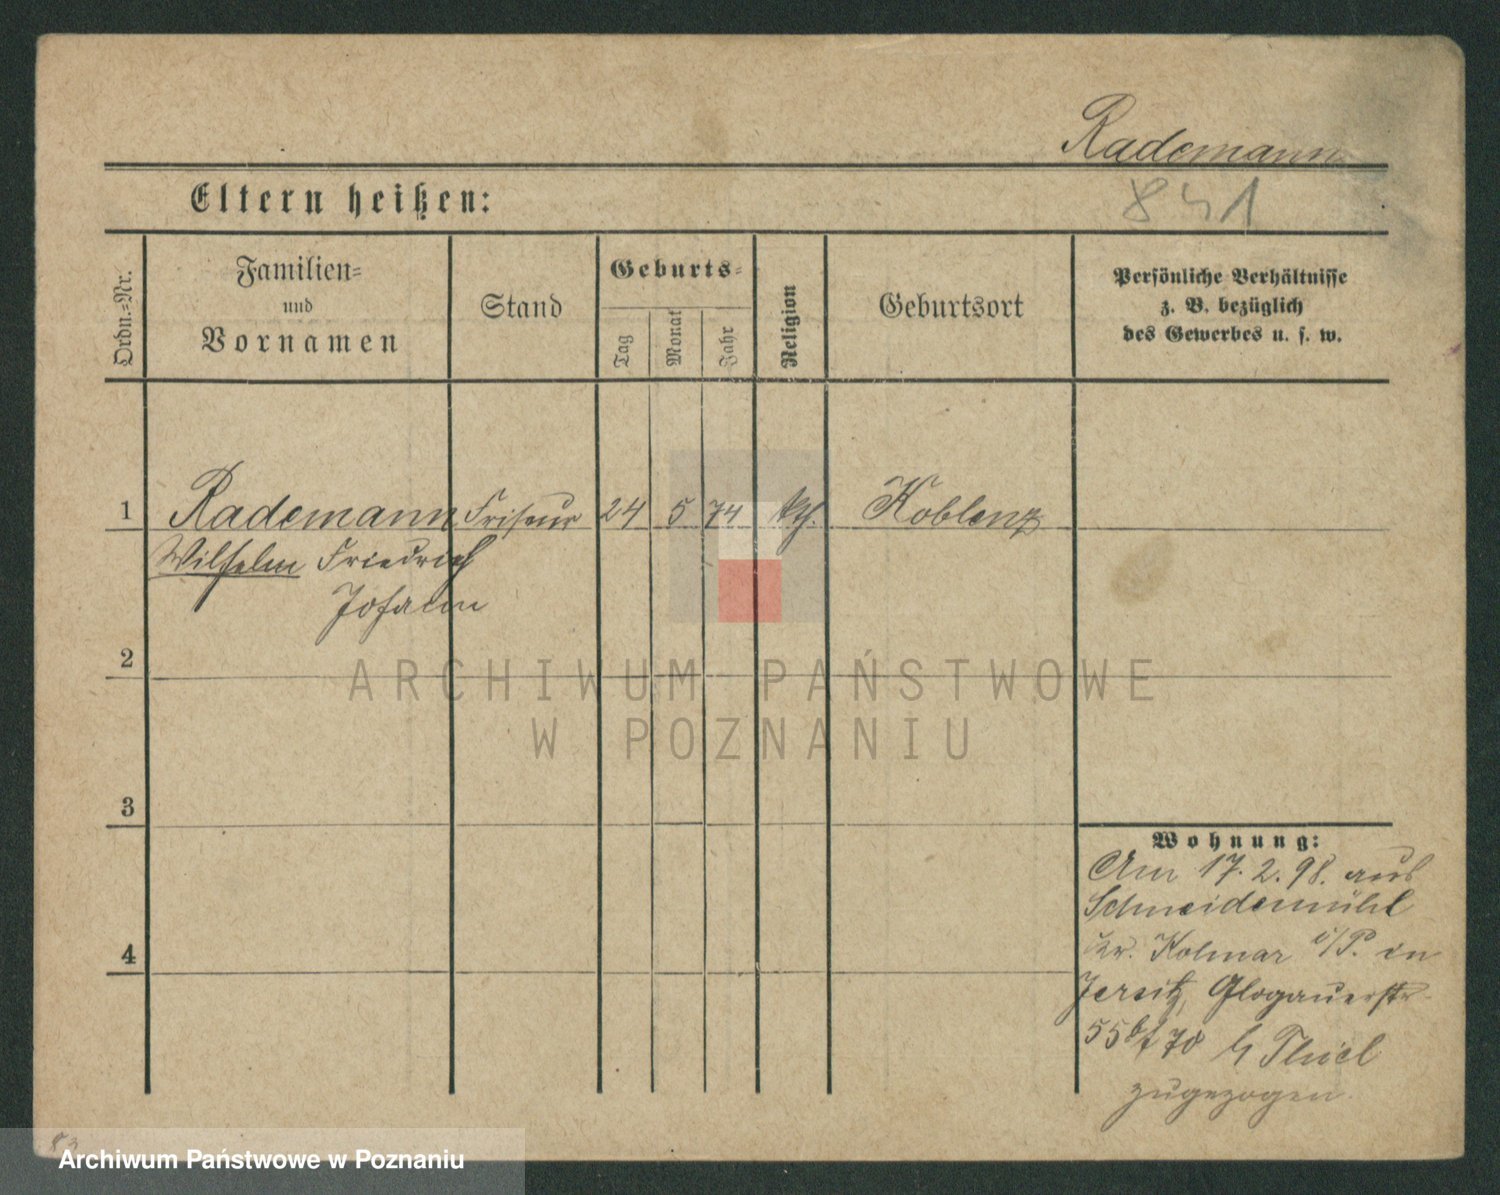 Rademann
841
Eltern heißen:
Ordn.=Nr.
Familien=
und
Vornamen
Stand
Geburts=
Tag
Monat
Jahr
Religion
Geburtsort
Persönliche Verhältnisse
z. B. bezüglich
des Gewerbes u. s. w.
1 Rademann Friseur 24 5 74 kth. Koblenz
Wilhelm Friedrich
Johann
2
3
4
Wohnung:
Am 17. 2. 98. aus
Schneidemühl
Kr. Kolmar i/P. in
Jersitz, Glogauerstr.
55 70 b/ Thiel
zugezogen.
ARCHIWUM PAŃSTWOWE
W POZNANIU
Archiwum Państwowe w Poznaniu